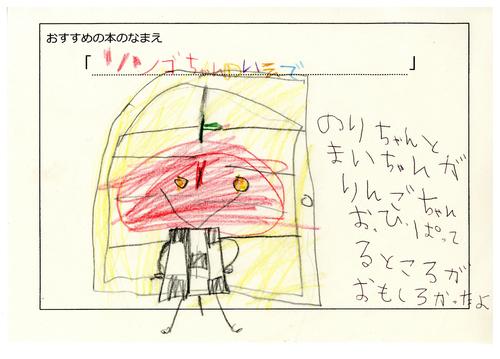 おすすめの本のなまえ
「リンゴちゃんのいえで」
のりちゃんと
まいちゃんが
りんごちゃん
おひっぱって
るところが
おもしろかったよ